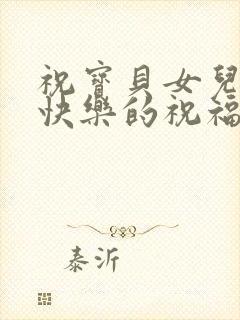 祝寶貝女兒
快樂的祝福
泰沂